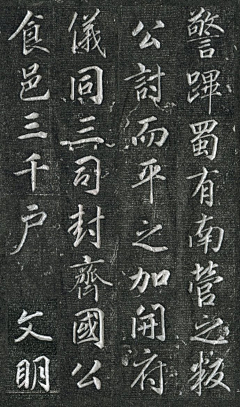 警蹕蜀有南營之叛
公討而平之加開府
儀同三司封齊國公
食邑三千户　文明